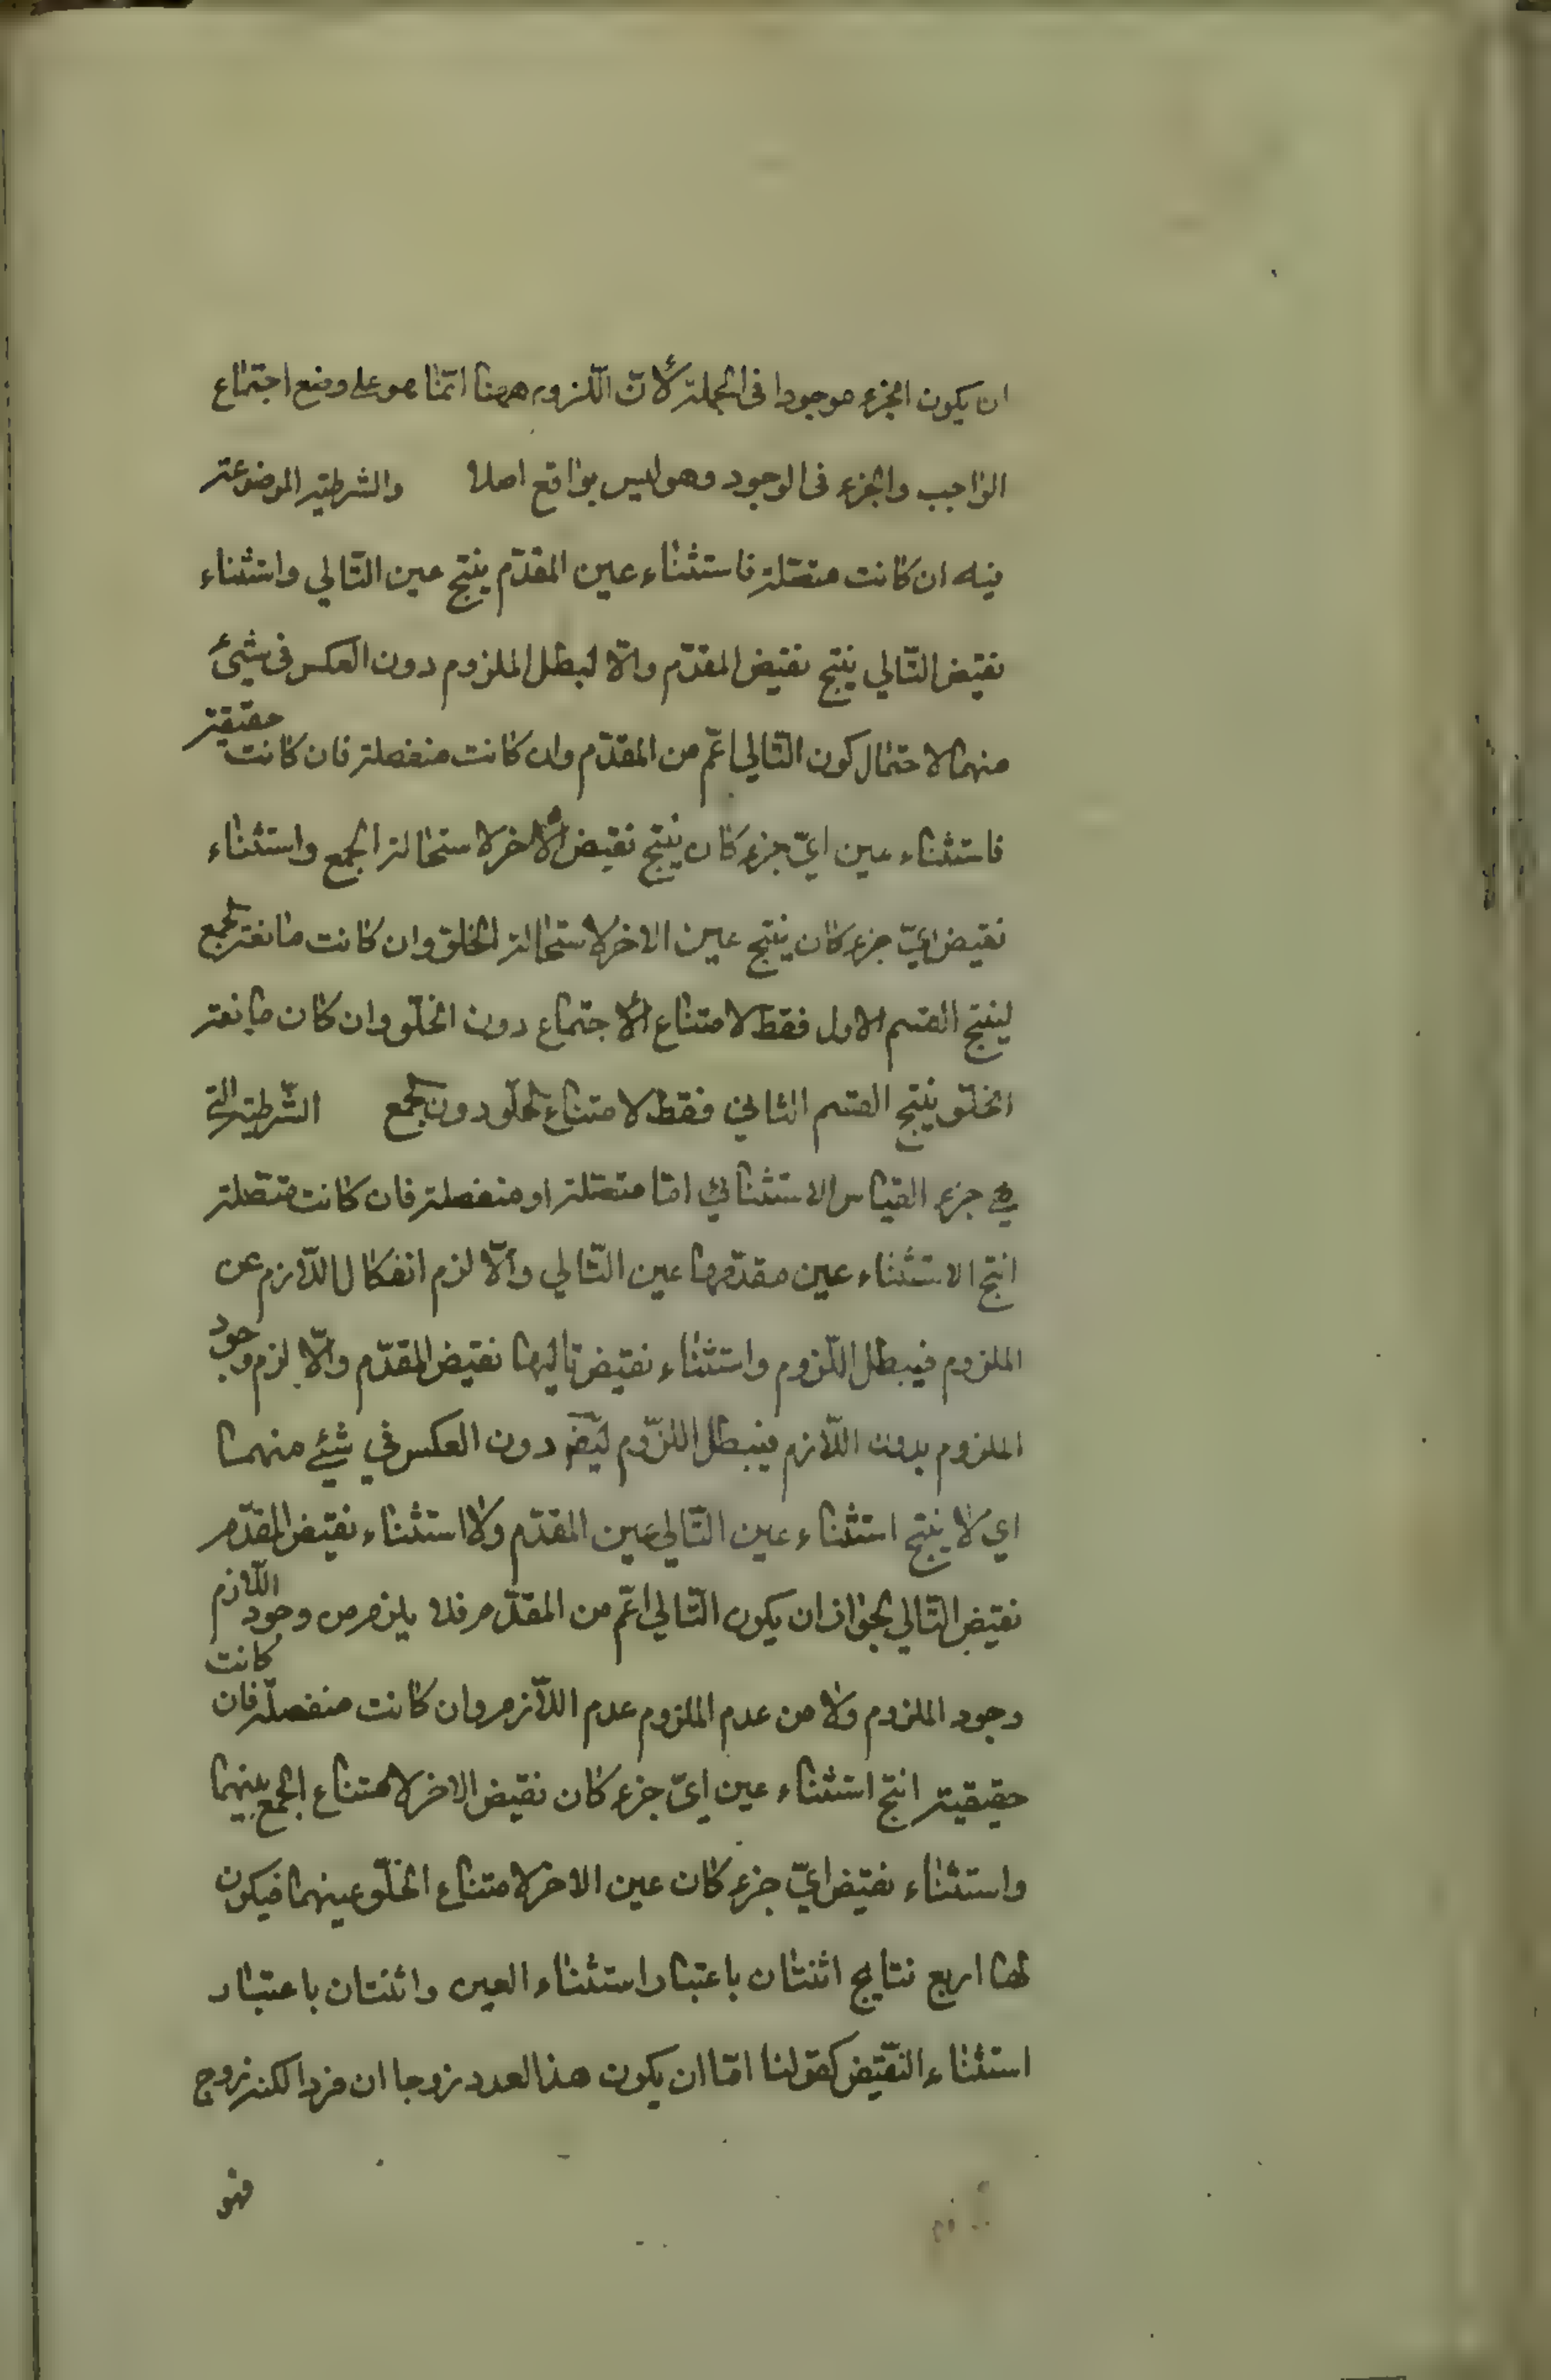 ان يكون الجزء موجودا فى الجملة لأنّ اللّزوم ههنا انّما هو على وضع اجتماع
الواجب والجزء فى الوجود وهو ليس بواقع اصلا والشرطية الموضوعة
فيه ان كانت متصلة فاستثناء عين المقدّم ينتج عين التّالي واستثناء
نقيض التّالي ينتج نقيض المقدّم والّا لبطل الملزوم دون العكس فى شيئ
منهما لاحتمال كون التّالي اعّم من المقدّم وان كانت منفصلة فان كانت حقيقة
فاستثناء عين ايّ جزء كان ينتج نقيض الأخر لاستحالة الجمع واستثناء
نقيض ايّ جزء كان ينتج عين الاخر لاستحالة الخلو وان كانت مانعة الجمع
لينتج القسم الاول فقط لامتناع الأجتماع دون الخلّو وان كان مانعة
الخلّو ينتج القسم الثاني فقط لامتناع الخلّو دون الجمع الشّرطية الّتي
هي جزء القياس الاستثنائي امّا متصّلة او منفصلة فان كانت متّصلة
انتج الاستثناء عين مقدّمها عين التّالي والّا لزم انفكاك اللّازم عن
الملزوم فيبطل اللّزوم واستثناء نقيض تاليها نقيض المقدّم والّا لزم وجود
الملزوم بدون اللّازم فيبطل اللّزوم ايضّ دون العكس في شيئ منهما
اي لا ينتج استثناء عين التّالي عين المقدّم ولا استثناء نقيض المقدّم
نقيض التّالي لجواز ان يكون التّالي اعّم من المقدّم فلا يلزم من وجود اللّازم
وجود الملزوم ولا من عدم الملزوم عدم اللّازم وان كانت منفصلّة فان كانت
حقيقية انتج استثناء عين ايّ جزء كان نقيض الاخر لامتناع الجمع بينهما
واستثناء نقيض ايّ جزء كان عين الاخر لامتناع الخلّو عينهما فيكون
لها اربع نتايج اثنتان باعتبار استثناء العين واثنتان باعتبار
استثناء النّقيض كقولنا امّا ان يكون هذا العدد زوجا ان فردا لكنه زوج
فهو